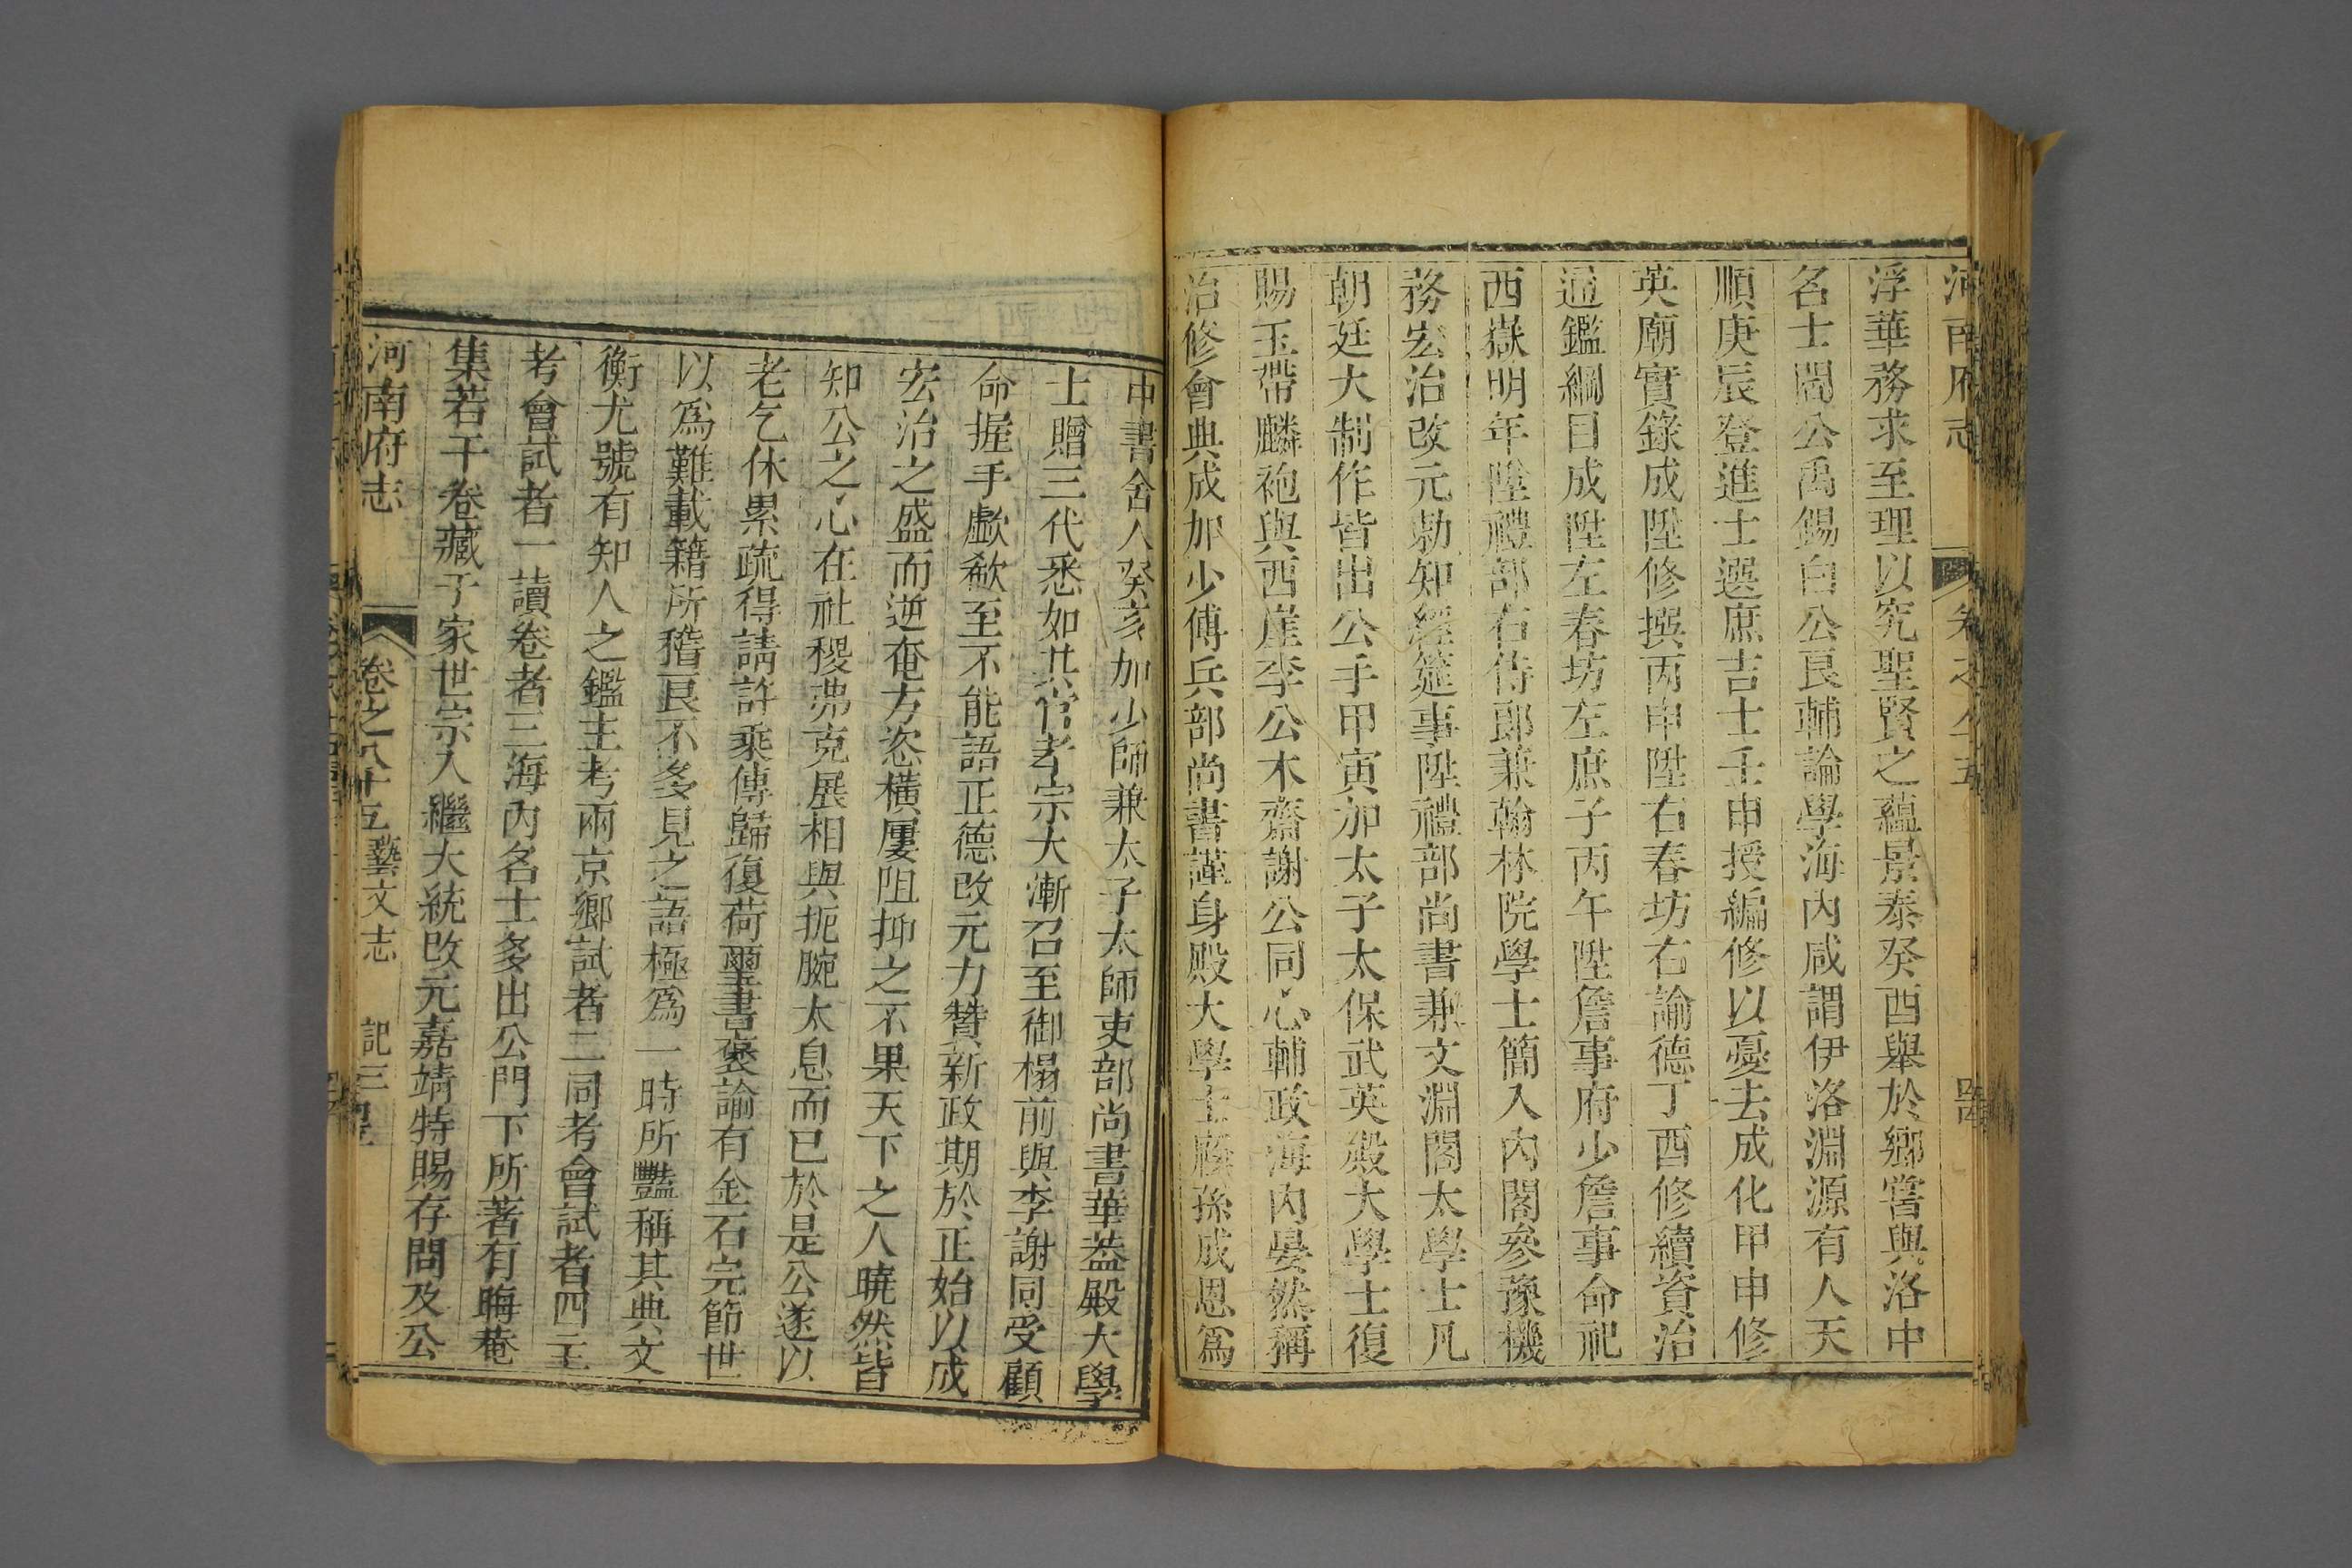 河南府志 卷之八十五
浮華務求至理以究聖賢之蘊景泰癸酉舉於鄉嘗與洛中
名士閻公禹錫白公良輔論學海內咸謂伊洛淵源有人天
順庚辰登進士選庶吉士壬申授編修以憂去成化甲申修
英廟實錄成陞修撰丙申陞右春坊右諭德丁酉修續資治
通鑑綱目成陞左春坊左庶子丙午陞詹事府少詹事命祀
西嶽明年陞禮部右侍郎兼翰林院學士簡入內閣參豫機
務宏治改元勑知經筵事陞禮部尚書兼文淵閣太學士凡
朝廷大制作皆出公手甲寅加太子太保武英殿大學士復
賜玉帶麟袍與西崖李公木齋謝公同心輔政海內晏然稱
治修會典成加少傅兵部尚書謹身殿大學士廕孫成恩爲
中書舍人癸亥加少師兼太子太師吏部尚書華蓋殿大學
士贈三代悉如其官孝宗大漸召至御榻前與李謝同受顧
命握手歔欷至不能語正德改元力贊新政期於正始以成
宏治之盛而逆奄方恣橫屢阻抑之不果天下之人曉然皆
知公之心在社稷弗克展相與扼腕太息而已於是公遂以
老乞休累疏得請許乘傳歸復荷璽書褒諭有金石完節世
以爲難載籍所稽艮不多見之語極爲一時所豔稱其典文
衡尤號有知人之鑑主考兩京鄉試者二同考會試者四主
考會試者一讀卷者三海內名士多出公門下所著有晦菴
集若干卷藏于家世宗入繼大統改元嘉靖特賜存問及公
河南府志 卷之八十五 藝文志 記三